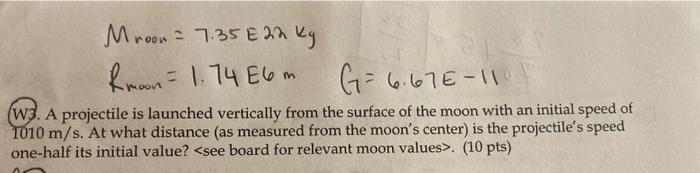 Mmoon = 7.35 E 22 kg
Rmoon = 1.74 E6 m G= 6.67E-11
W3. A projectile is launched vertically from the surface of the moon with an initial speed of
1010 m/s. At what distance (as measured from the moon's center) is the projectile's speed
one-half its initial value? <see board for relevant moon values>. (10 pts)